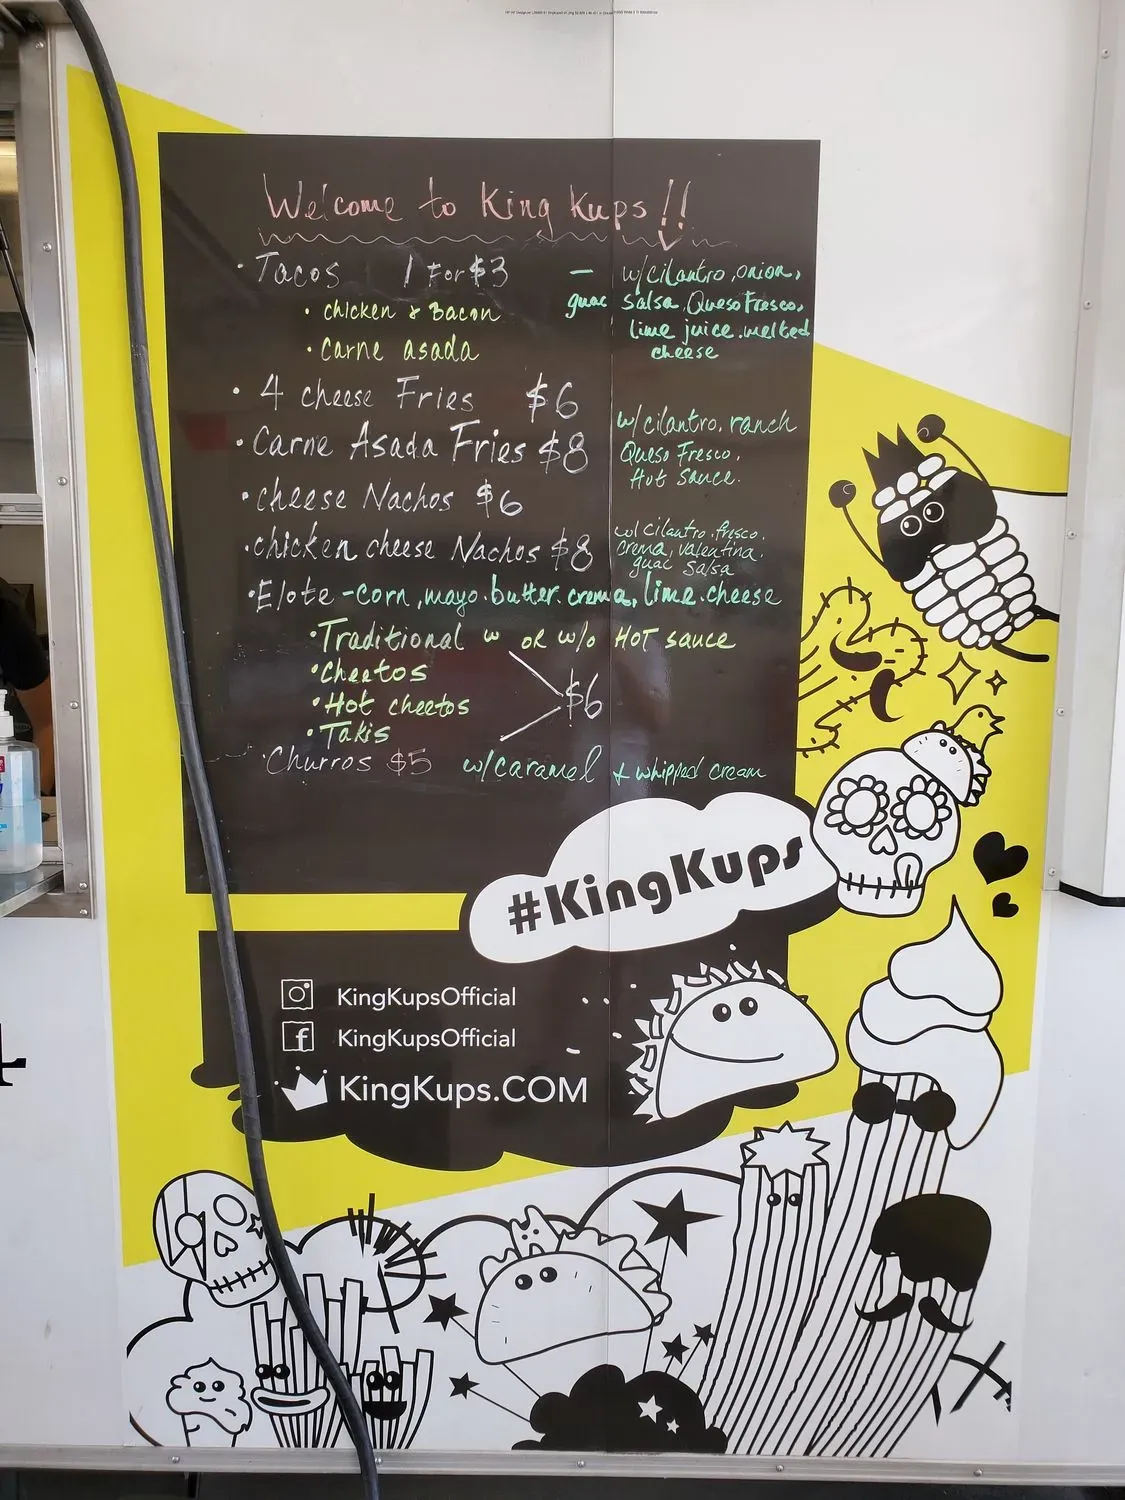 Welcome to King Kups!!
• Tacos 1 For $3 — w/cilantro, onion,
guac salsa, Queso Fresco,
lime juice. melted
cheese
• chicken & Bacon
• Carne asada
• 4 cheese Fries $6
• Carne Asada Fries $8
w/cilantro, ranch
Queso Fresco,
Hot Sauce.
• cheese Nachos $6
• chicken cheese Nachos $8
w/ cilantro. fresco.
crema, valentina.
guac salsa
• Elote - corn, mayo. butter. crema, lime. cheese
• Traditional w or w/o HOT sauce
• Cheetos
• Hot cheetos
• Takis
$6
• Churros $5 w/caramel & whipped cream
#KingKups
KingKupsOfficial
f KingKupsOfficial
KingKups.COM